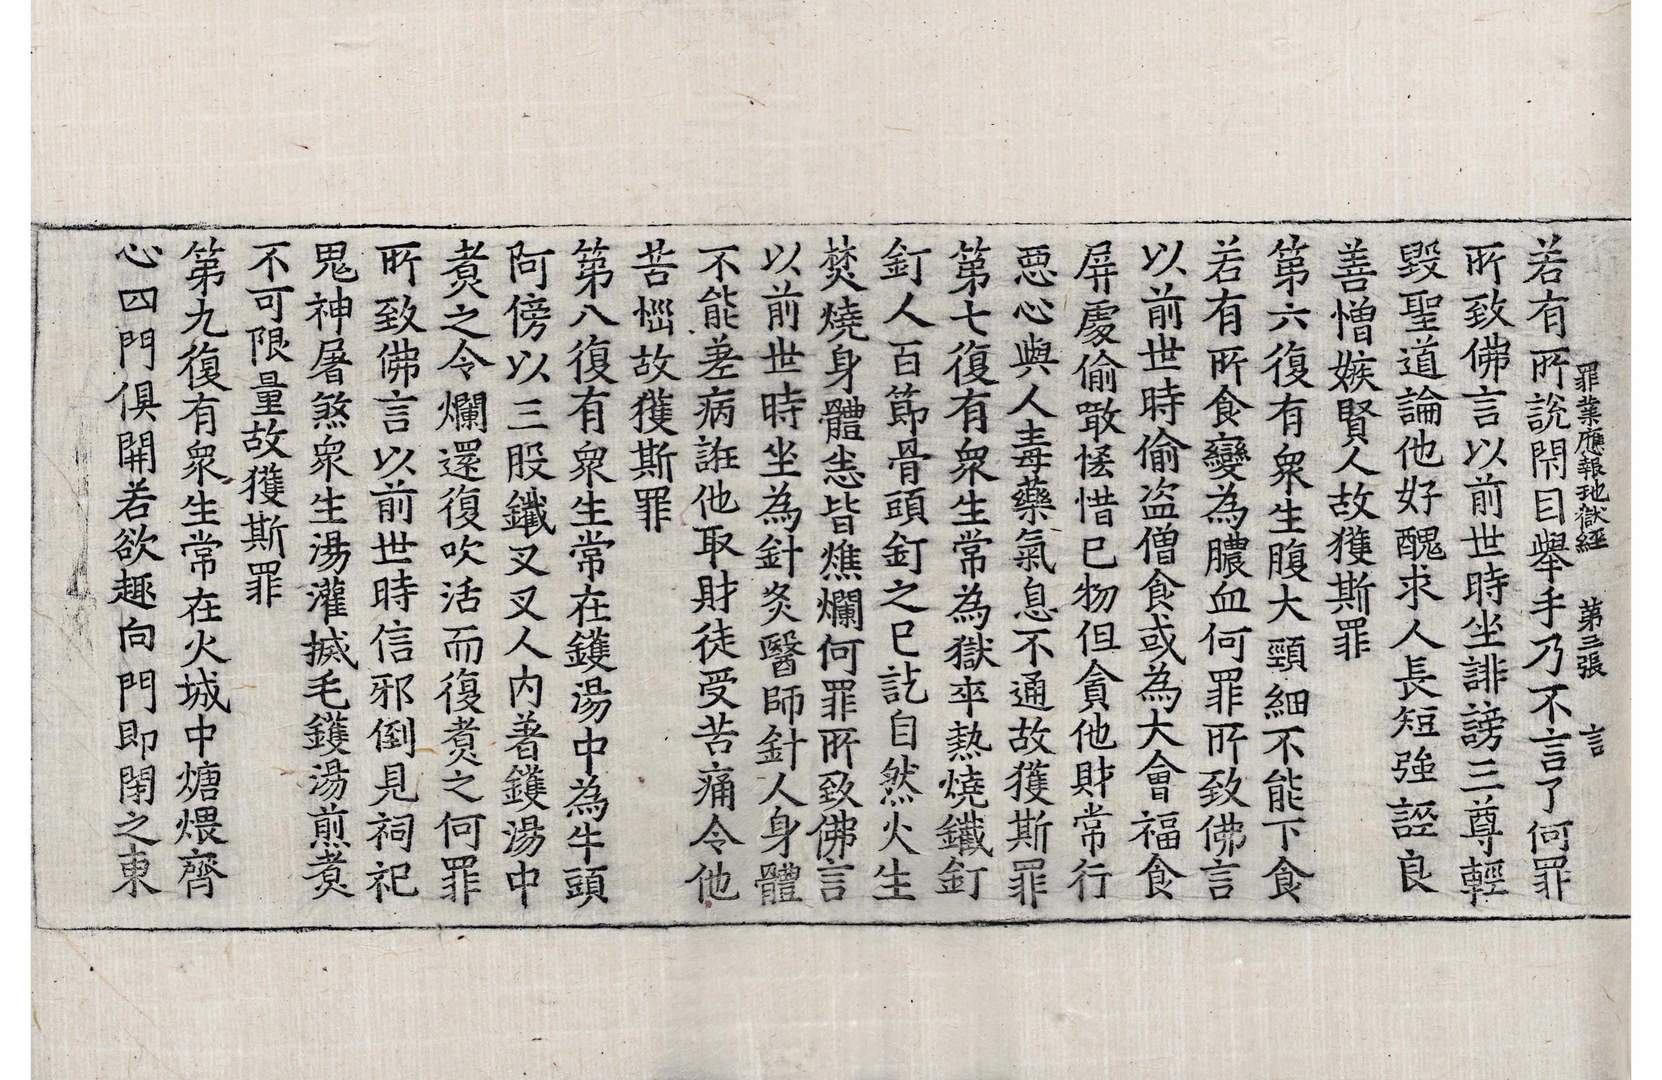 罪業應報地獄經 第三張 言
若有所說閇目舉手乃不言了何罪
所致佛言以前世時坐誹謗三尊輕
毀聖道論他好醜求人長短強誣良
善憎嫉賢人故獲斯罪
第六復有衆生腹大頸細不能下食
若有所食變為膿血何罪所致佛言
以前世時偷盜僧食或為大會福食
屏處偷噉恡惜已物但貪他財常行
惡心與人毒藥氣息不通故獲斯罪
第七復有衆生常為獄卒熱燒鐵釘
釘人百節骨頭釘之已訖自然火生
焚燒身體悉皆燋爛何罪所致佛言
以前世時坐為針灸醫師針人身體
不能差病誑他取財徒受苦痛令他
苦惱故獲斯罪
第八復有衆生常在鑊湯中為牛頭
阿傍以三股鐵叉叉人內著鑊湯中
煮之令爛還復吹活而復煮之何罪
所致佛言以前世時信邪倒見祠祀
鬼神屠煞衆生湯灌搣毛鑊湯煎煮
不可限量故獲斯罪
第九復有衆生常在火城中煻煨齊
心四門俱開若欲趣向門門即閇之東